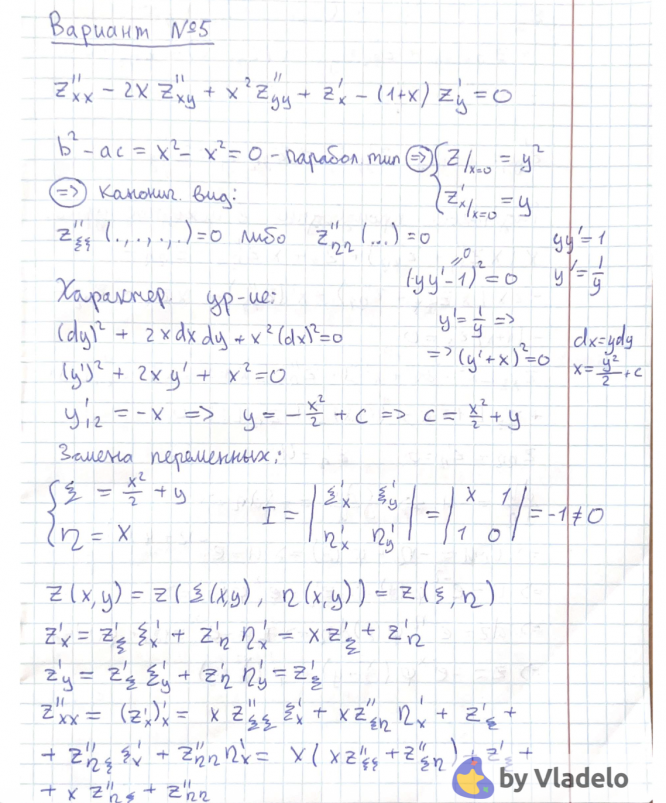 Вариант №5
z''xx − 2x z''xy + x² z''yy + z'x − (1+x) z'y = 0
b² − ac = x² − x² = 0 - парабол тип ⇒ { z|x=0 = y²
z'x|x=0 = y
⇒ Каноnич. вид:
z''ξξ (.,.,.,.) = 0 либо z''ηη (...) = 0
yy' = 1
(yy' − 1)² = 0
y' = 1/y
Характер. ур-ие:
y' = 1/y ⇒
(dy)² + 2x dx dy + x² (dx)² = 0
⇒ (y' + x)² = 0
dx = ydy
x = y²/2 + c
(y')² + 2x y' + x² = 0
y'1,2 = −x ⇒ y = −x²/2 + c ⇒ c = x²/2 + y
Замена переменных:
{ ξ = x²/2 + y
η = x
I = | ξ'x ξ'y | = | x 1 | = −1 ≠ 0
| η'x η'y | | 1 0 |
z(x,y) = z(ξ(x,y), η(x,y)) = z(ξ, η)
z'x = z'ξ ξ'x + z'η η'x = x z'ξ + z'η
z'y = z'ξ ξ'y + z'η η'y = z'ξ
z''xx = (z'x)'x = x z''ξξ ξ'x + x z''ξη η'x + z'ξ +
+ z''ηξ ξ'x + z''ηη η'x = x(x z''ξξ + z''ξη) + z'ξ +
+ x z''ηξ + z''ηη
by Vladelo